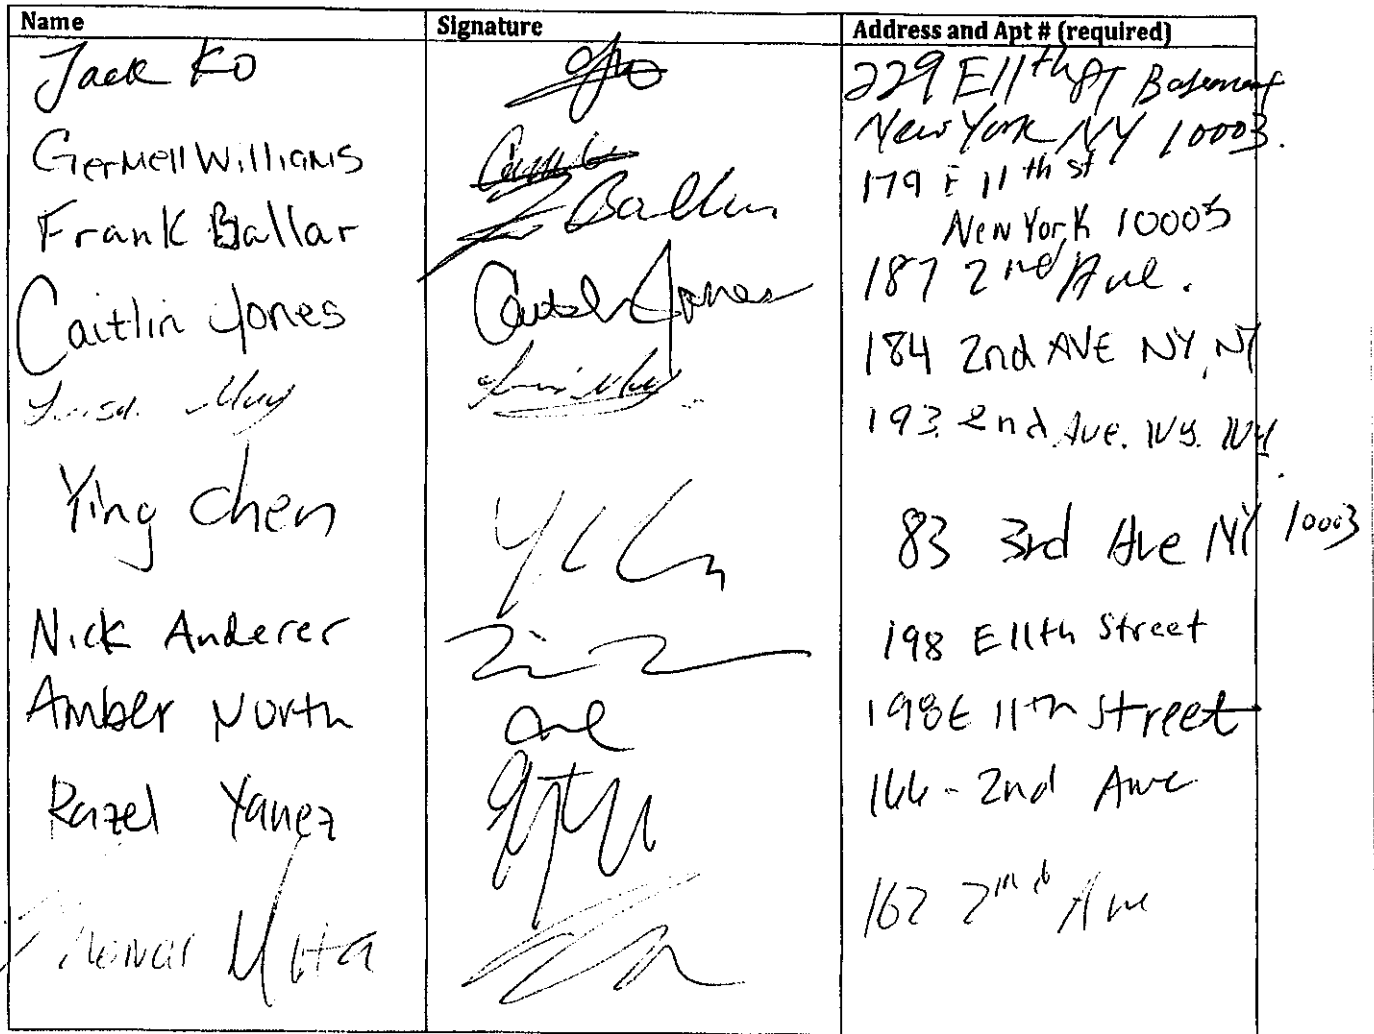 Name Signature Address and Apt # (required)
Jack Ko 229 E 11th ST Basement
New York NY 10003.
Germell Williams 179 E 11th st
New York 10003
Frank Ballar F Ballar 187 2nd Ave.
Caitlin Jones Caitlin Jones 184 2nd AVE NY, NY
193 2nd Ave. NY. NY.
Ying Chen 83 3rd Ave NY 10003
Nick Anderer 198 E 11th Street
Amber North 198 E 11th Street
Razel Yanez 166 - 2nd Ave
162 2nd Ave